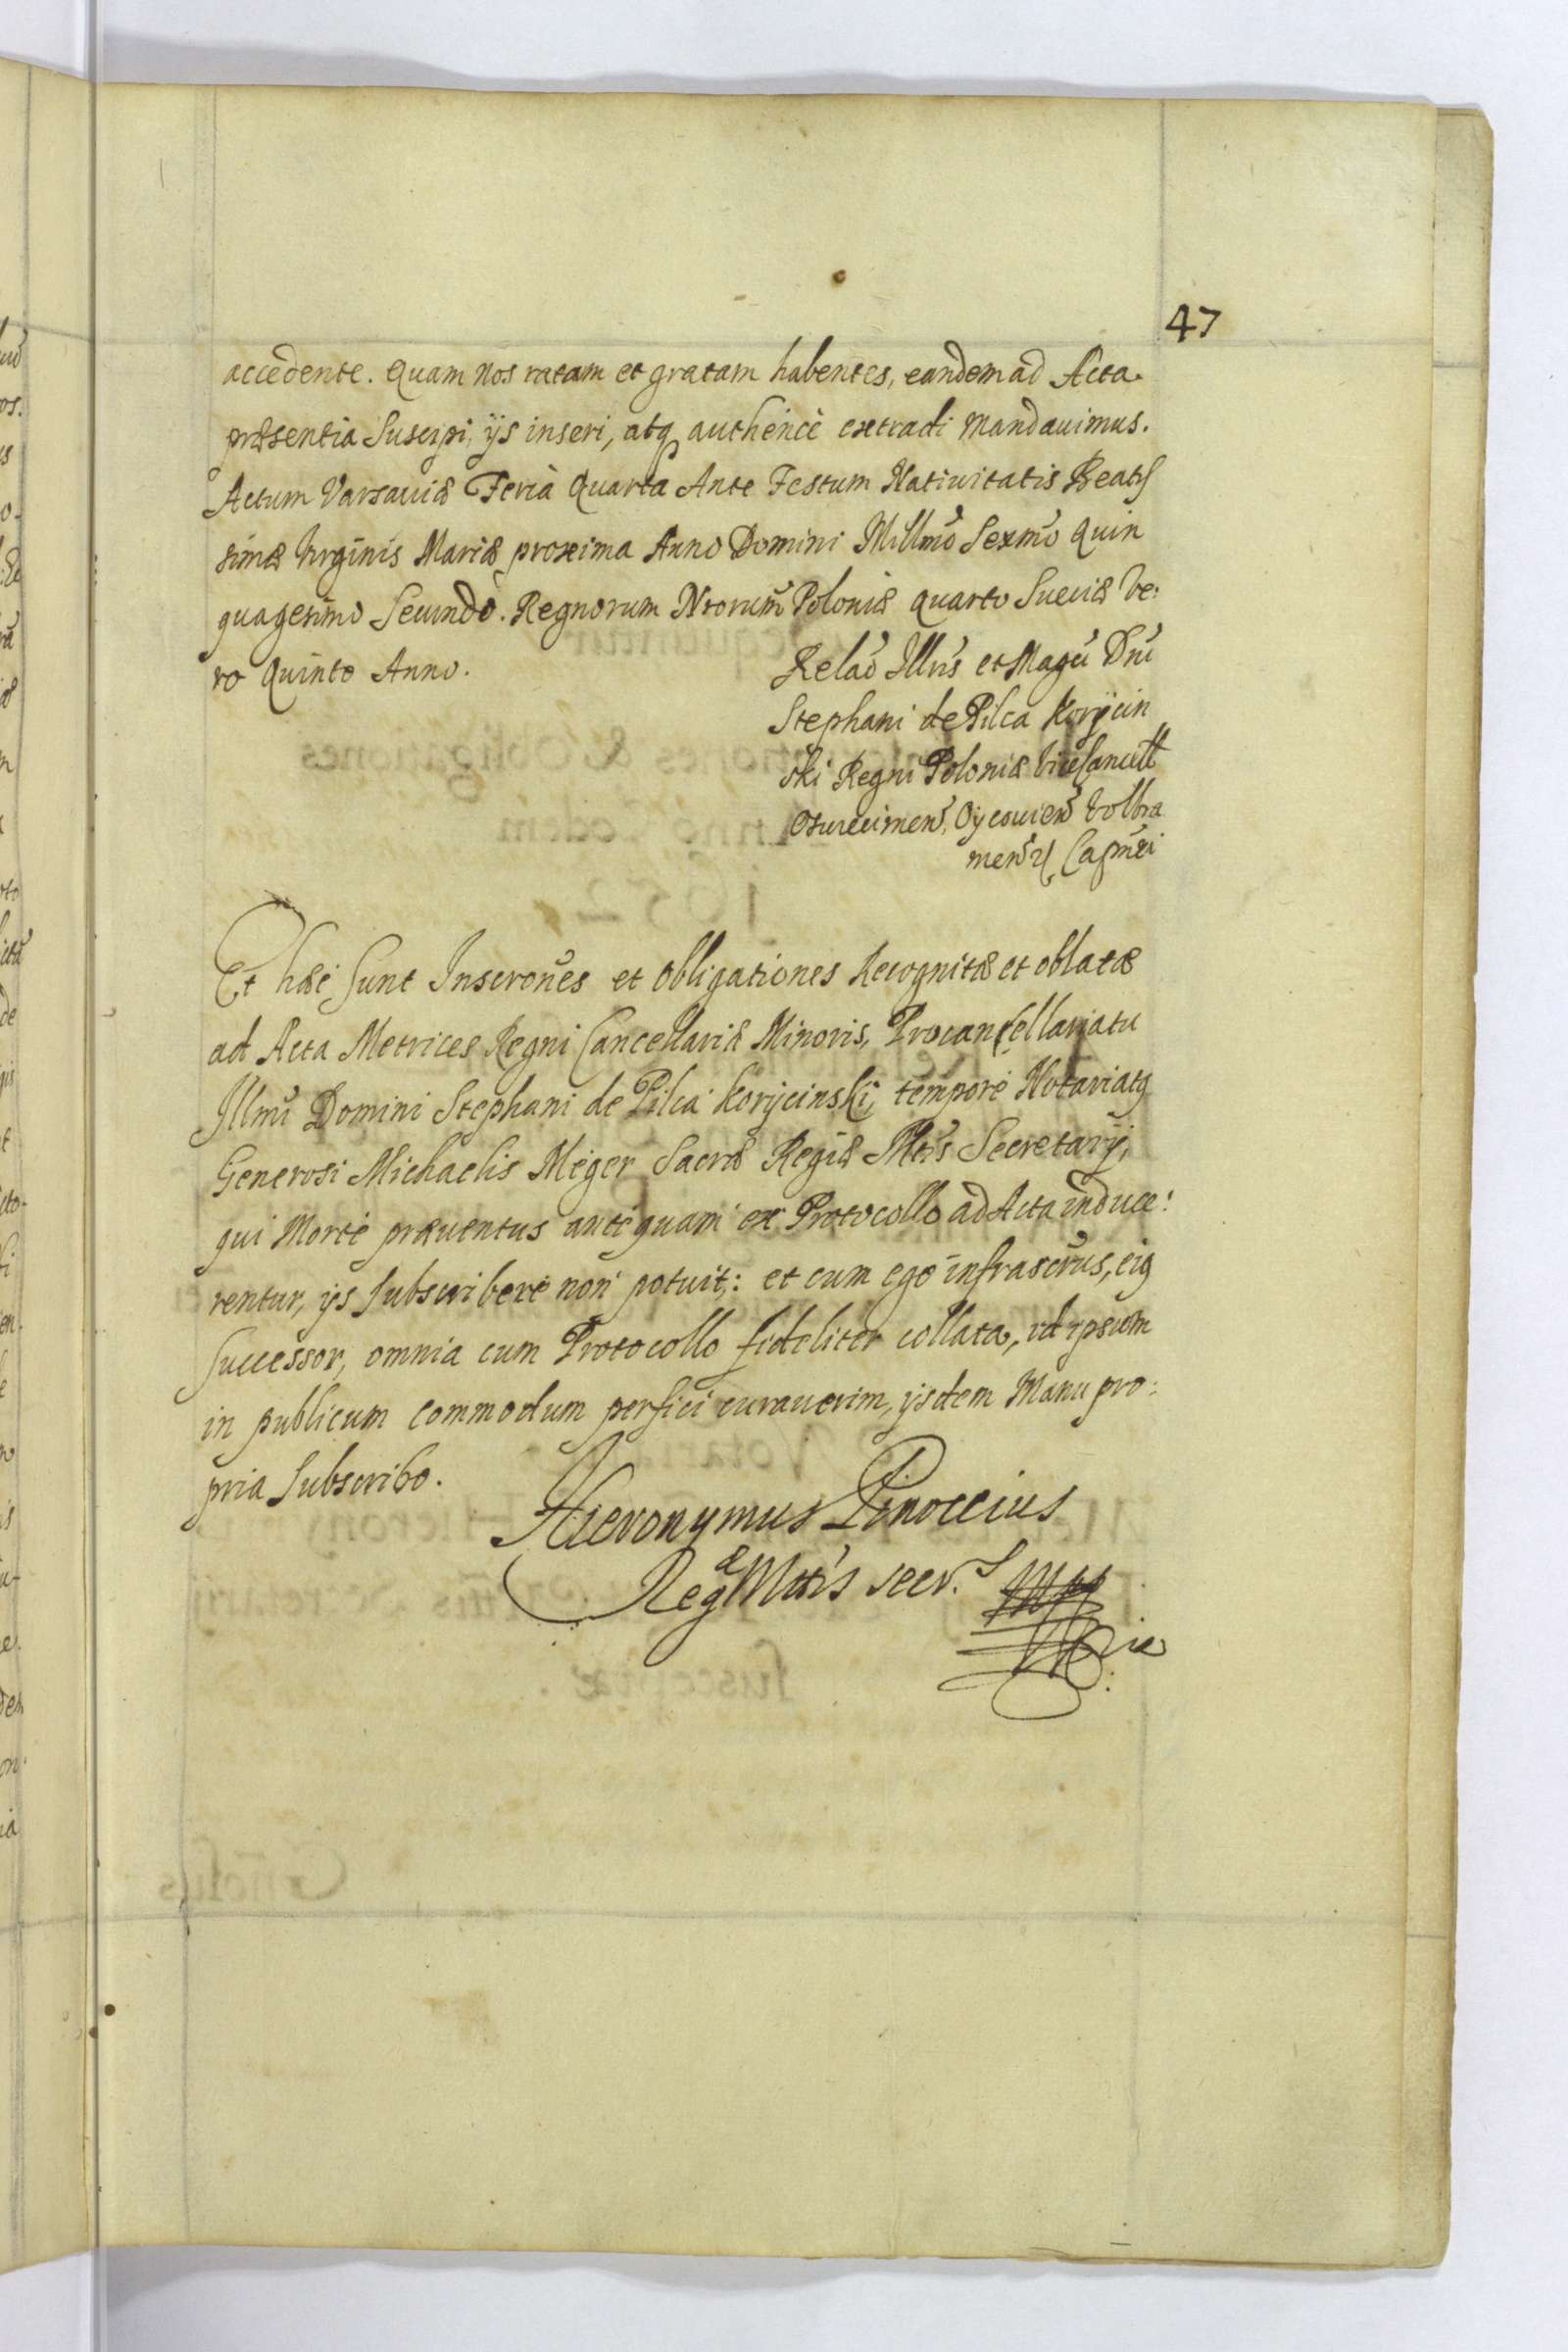 47
accedente. Quam nos ratam et gratam habentes, eandem ad Acta
præsentia Suscipi, ijs inseri, atq authenicè extradi Mandauimus.
Actum Varsauiæ Feriâ Quarta Ante Festum Natiuitatis Beatis
simæ Virginis Mariæ proxima Anno Domini Millmõ Sexmõ Quin
quagesimo Secundò. Regnorum Nrorum Poloniæ quarto Sueciæ Ve:
ro Quinto Anno.
Relaõ Illris et Magci Dni
Stephani de Pilca Korÿcin
ski Regni Poloniæ ViceCancell
Oycouien Volbra
men
Et hæc Sunt Inscrones et Obligationes Recognitæ et oblatæ
ad Acta Metrices Regni Cancellariæ Minoris, Procancellariatu
Illmi Domini Stephani de Pilca Korÿcinski, tempore Notariatq
Generosi Michaelis Meger Sacræ Regiæ Mtis Secretarÿ,
qui Morte præuentus antequam ex Protocollo ad Acta induce:
rentur, ijs Subscribere non potuit,: et cum ego infrascrus, eiq
Successor, omnia cum Protocollo fideliter collata, id ipsum
in publicum commodum perfici curauerim, ijsdem Manu pro:
pria Subscribo.
Hieronymus Pinoccius
Reg Mtis secr.